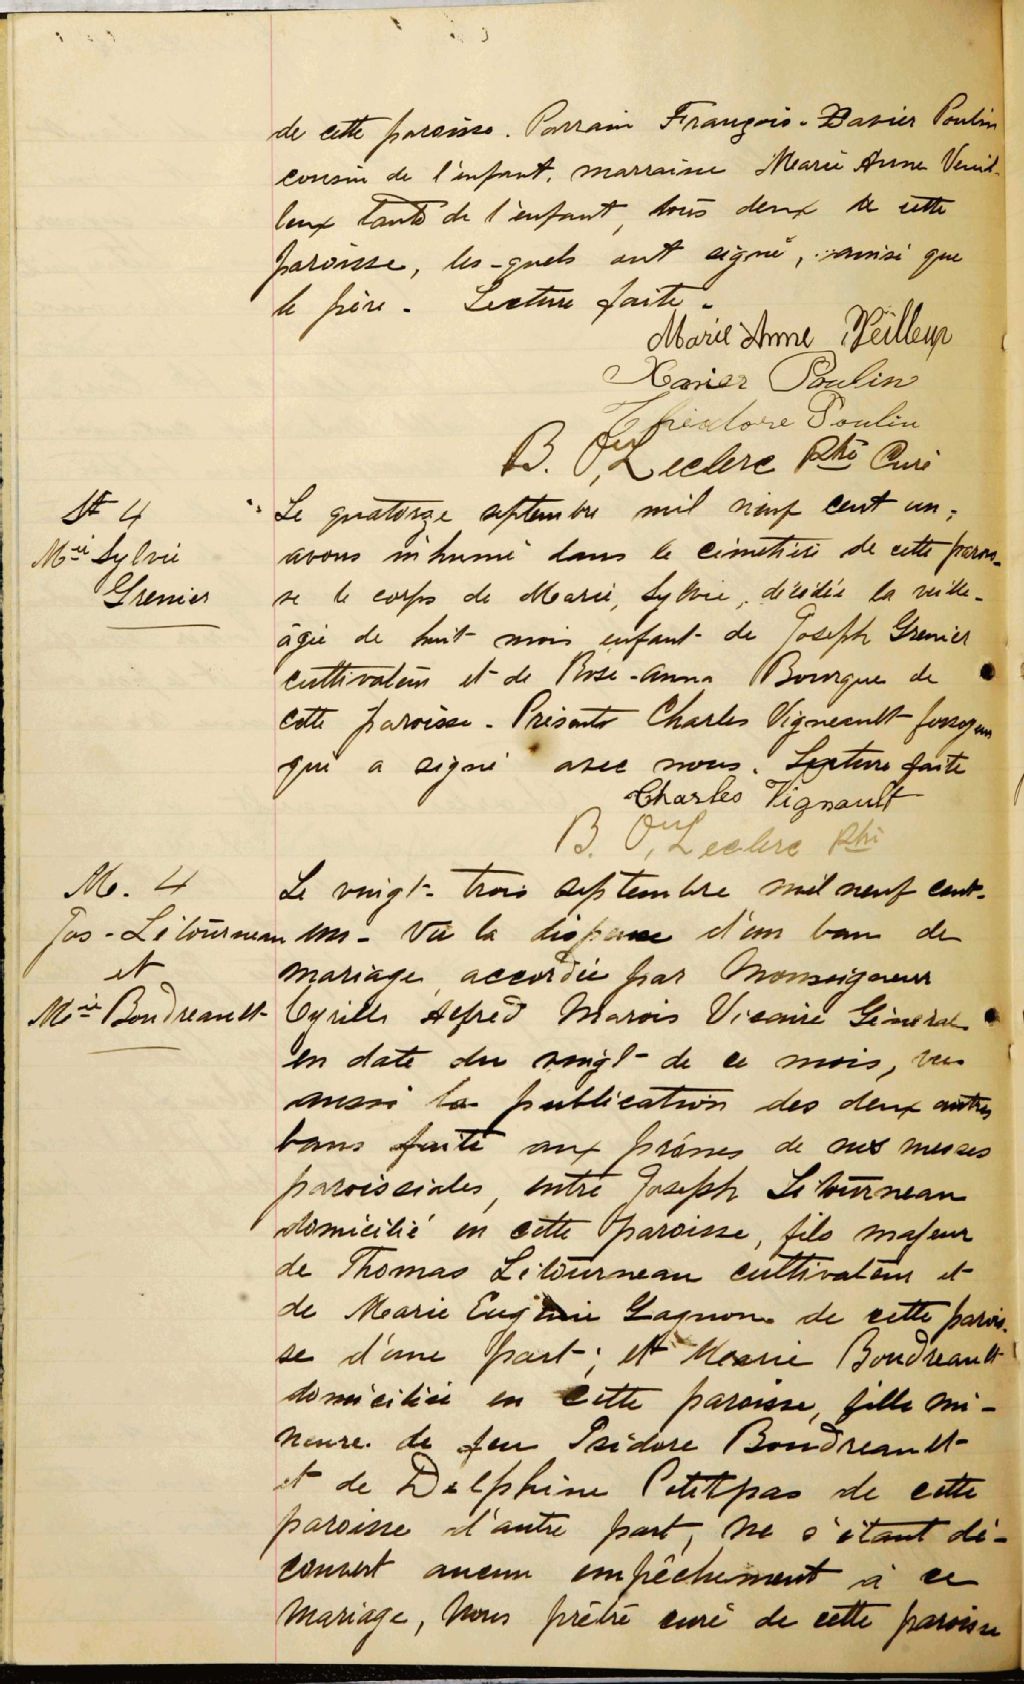 de cette paroisse. Parrain François-Xavier Poulin
cousin de l'enfant, marraine Marie Anne Veuil-
leux tante de l'enfant, tous deux de cette
paroisse, les-quels ont signé, ainsi que
le père. Lecture faite.
Marie Anne Veilleux
Xavier Poulin
Théodore Poulin
B. Oer Leclerc Ptre Curé
St 4
Mie Sylvie
Grenier
Le quatorze septembre mil neuf cent un,
avons inhumé dans le cimetière de cette parois-
se le corps de Marie, Sylvie, décédée la veille-
âgée de huit mois enfant de Joseph Grenier
cultivateur et de Rose-anna Bourque de
cette paroisse. Présents Charles Vigneault fossoyeur
qui a signé avec nous. Lecture faite
Charles Vignault
B. Oer Leclerc Ptre
M. 4
Jos-Létourneau
et
Mie Boudreault
Le vingt-trois septembre mil neuf cent-
un- Vu la dispense d'un ban de
mariage accordée par Monseigneur
Cyrille Alfred Marois Vicaire Général
en date du vingt de ce mois, vu
aussi la publication des deux autres
bans faite aux prônes de nos messes
paroissiales, entre Joseph Létourneau
domicilié en cette paroisse, fils majeur
de Thomas Létourneau cultivateur et
de Marie Eugénie Gagnon de cette parois-
se d'une part; et Marie Boudreault
domiciliée en cette paroisse, fille mi-
neure de feu Isidore Boudreault
et de Delphine Petitpas de cette
paroisse d'autre part, ne s'étant dé-
couvert aucun empêchement à ce
mariage, Nous prêtre curé de cette paroisse